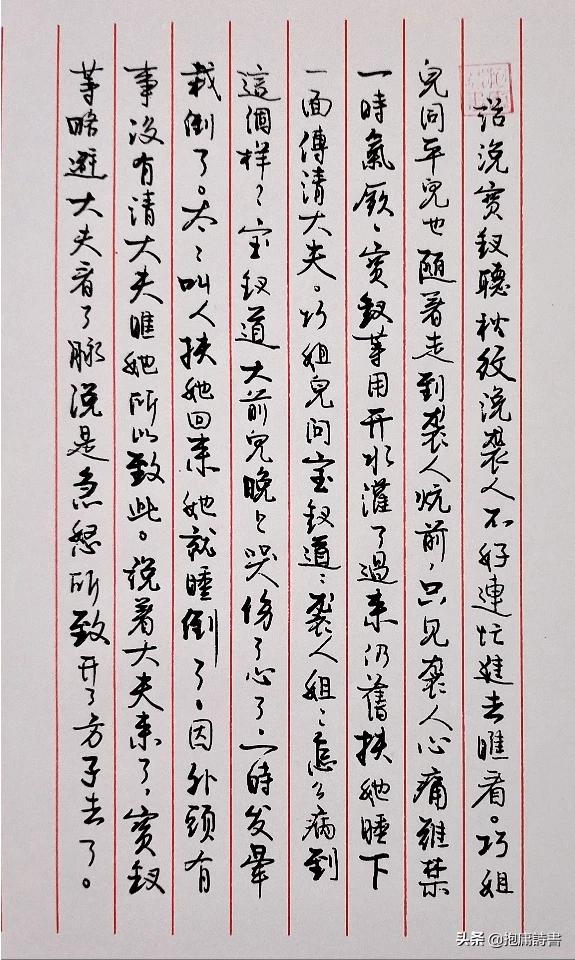 話說寶釵聽秋紋說襲人不好連忙進去瞧看。巧姐
兒同平兒也隨着走到襲人炕前，只見襲人心痛難禁
一時氣厥，寶釵等用开水灌了過来仍舊扶她睡下
一面傳请大夫。巧姐兒问宝釵道：襲人姐：怎么病到
這個样？宝釵道大前兒晚上哭傷了心了，一時发暈
栽倒了。太：叫人扶她回来她就睡倒了。因外頭有
事沒有请大夫瞧她所以致此。說着大夫来了，寶釵
等略避大夫看了脉說是急怒所致开了方子去了。
头条 @抱庸詩書